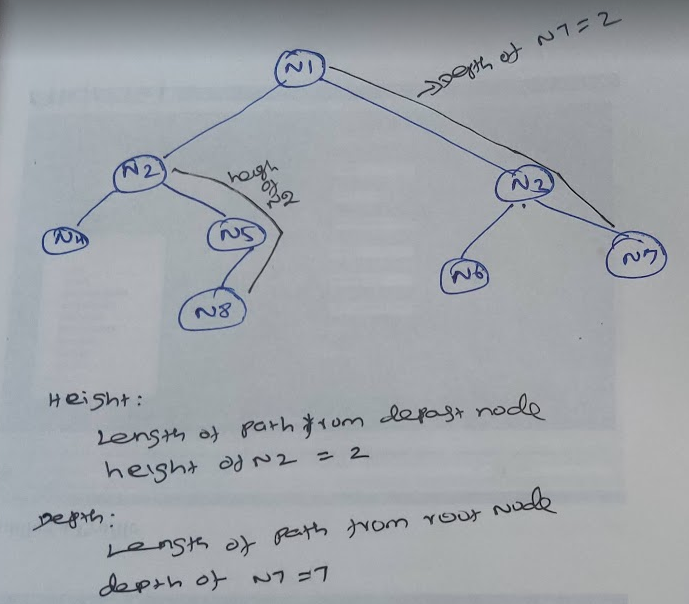 N1
→Depth of N7=2
N2
heigh
of
N2
N3
N4
N5
N6
N7
N8
Height:
Length of path from depast node
height of N2 = 2
Depth:
Length of path from root Node
depth of N7 =7